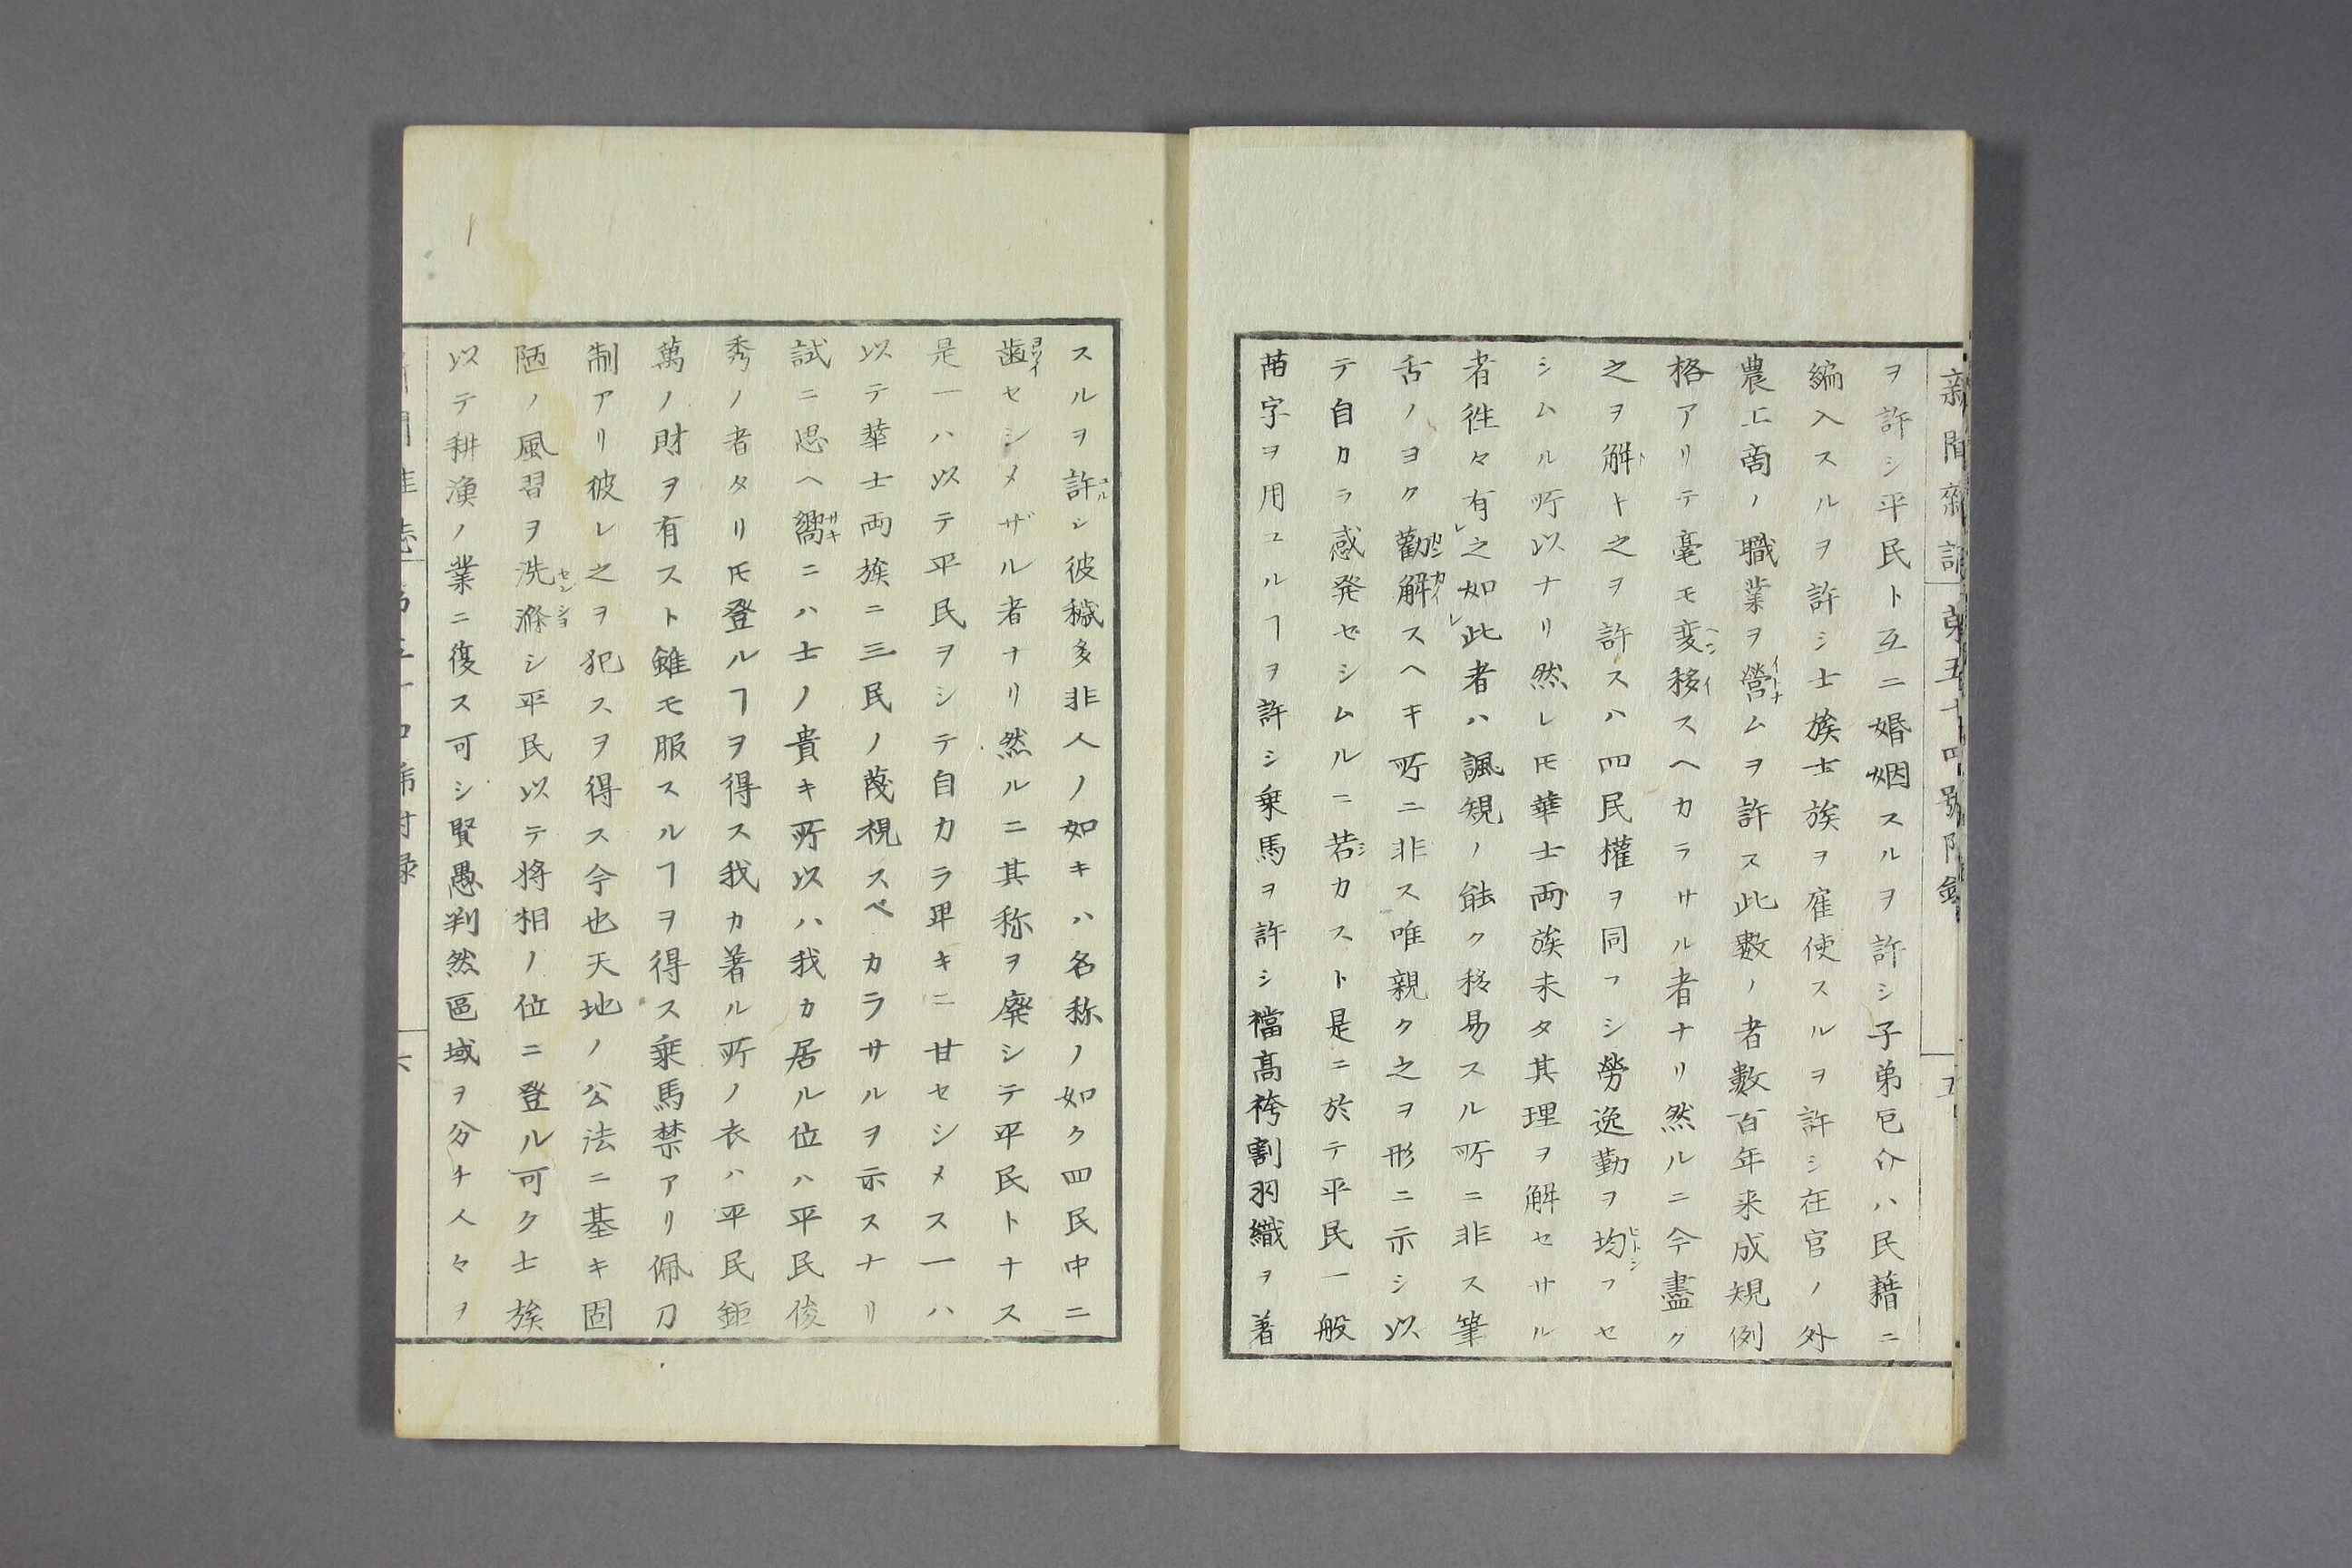 新聞雑誌 第五十四號附録 五
ヲ許シ平民ト互ニ婚姻スルヲ許シ子弟厄介ハ民籍ニ
編入スルヲ許シ士族士族ヲ雇使スルヲ許シ在官ノ外
農工商ノ職業ヲ營ムヲ許ス此數ノ者數百年来成規例
格アリテ毫モ変移スヘカラサル者ナリ然ルニ今盡ク
之ヲ解ト之ヲ許スハ四民權ヲ同フシ勞逸勤ヲ均フセ
シムル所以ナリ然レモ華士両族未タ其理ヲ解セサル
者徃々有之如此者ハ諷規ノ能ク移易スル所ニ非ス筆
舌ノヨク勸解スヘキ所ニ非ス唯親ク之ヲ形ニ示シ以
テ自カラ感発セシムルニ若カスト是ニ於テ平民一般
苗字ヲ用ユルヿヲ許シ乗馬ヲ許シ襠高袴割羽織ヲ著
スルヲ許シ彼穢多非人ノ如キハ名称ノ如ク四民中ニ
歯セシメザル者ナリ然ルニ其称ヲ廃シテ平民トナス
是一ハ以テ平民ヲシテ自カラ卑キニ甘セシメス一ハ
以テ華士両族ニ三民ノ蔑視スベカラサルヲ示スナリ
試ニ思ヘ嚮ニハ士ノ貴キ所以ハ我カ居ル位ハ平民俊
秀ノ者タリモ登ルヿヲ得ス我カ著ル所ノ衣ハ平民鉅
萬ノ財ヲ有スト雖モ服スルヿヲ得ス乗馬禁アリ佩刀
制アリ彼レ之ヲ犯スヲ得ス今也天地ノ公法ニ基キ固
陋ノ風習ヲ洗滌シ平民以テ将相ノ位ニ登ル可ク士族
以テ耕漁ノ業ニ復ス可シ賢愚判然區域ヲ分チ人々ヲ